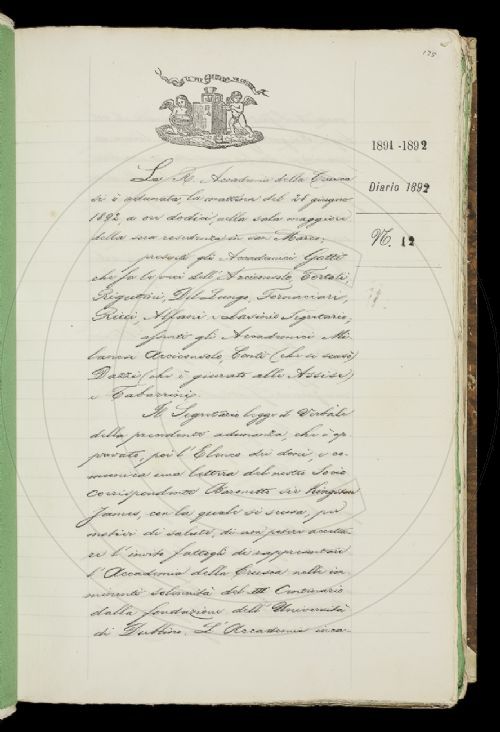 178
1891-1892
Diario 1892
N. 12
La R. Accademia della Crusca
si è adunata la mattina del 28 giugno
1892 a ore dodici nella sala maggiore
della sua residenza in San Marco;
presenti gli Accademici Gotti
che fa le veci dell'Arciconsolo, Tortoli,
Rigutini, Del Lungo, Fornaciari,
Ricci, Alfani e Tabarrini Segretario;
assenti gli Accademici Mi-
lanesi Arciconsolo, Conti (che si scusò)
Dazzi (che è giurato alle Assise)
e Tabarrini.
Il Segretario legge il Verbale
della precedente adunanza, che è ap-
provato, poi l'Elenco dei doni, e co-
munica una lettera del nostro Socio
corrispondente Baronetto Sir Kingston
James, con la quale si scusa, per
motivi di salute, di non poter accetta-
re l'invito fattogli di rappresentare
l'Accademia della Crusca nelle im-
minenti solennità del III Centenario
dalla fondazione dell'Università
di Dublino. L'Accademia inca-